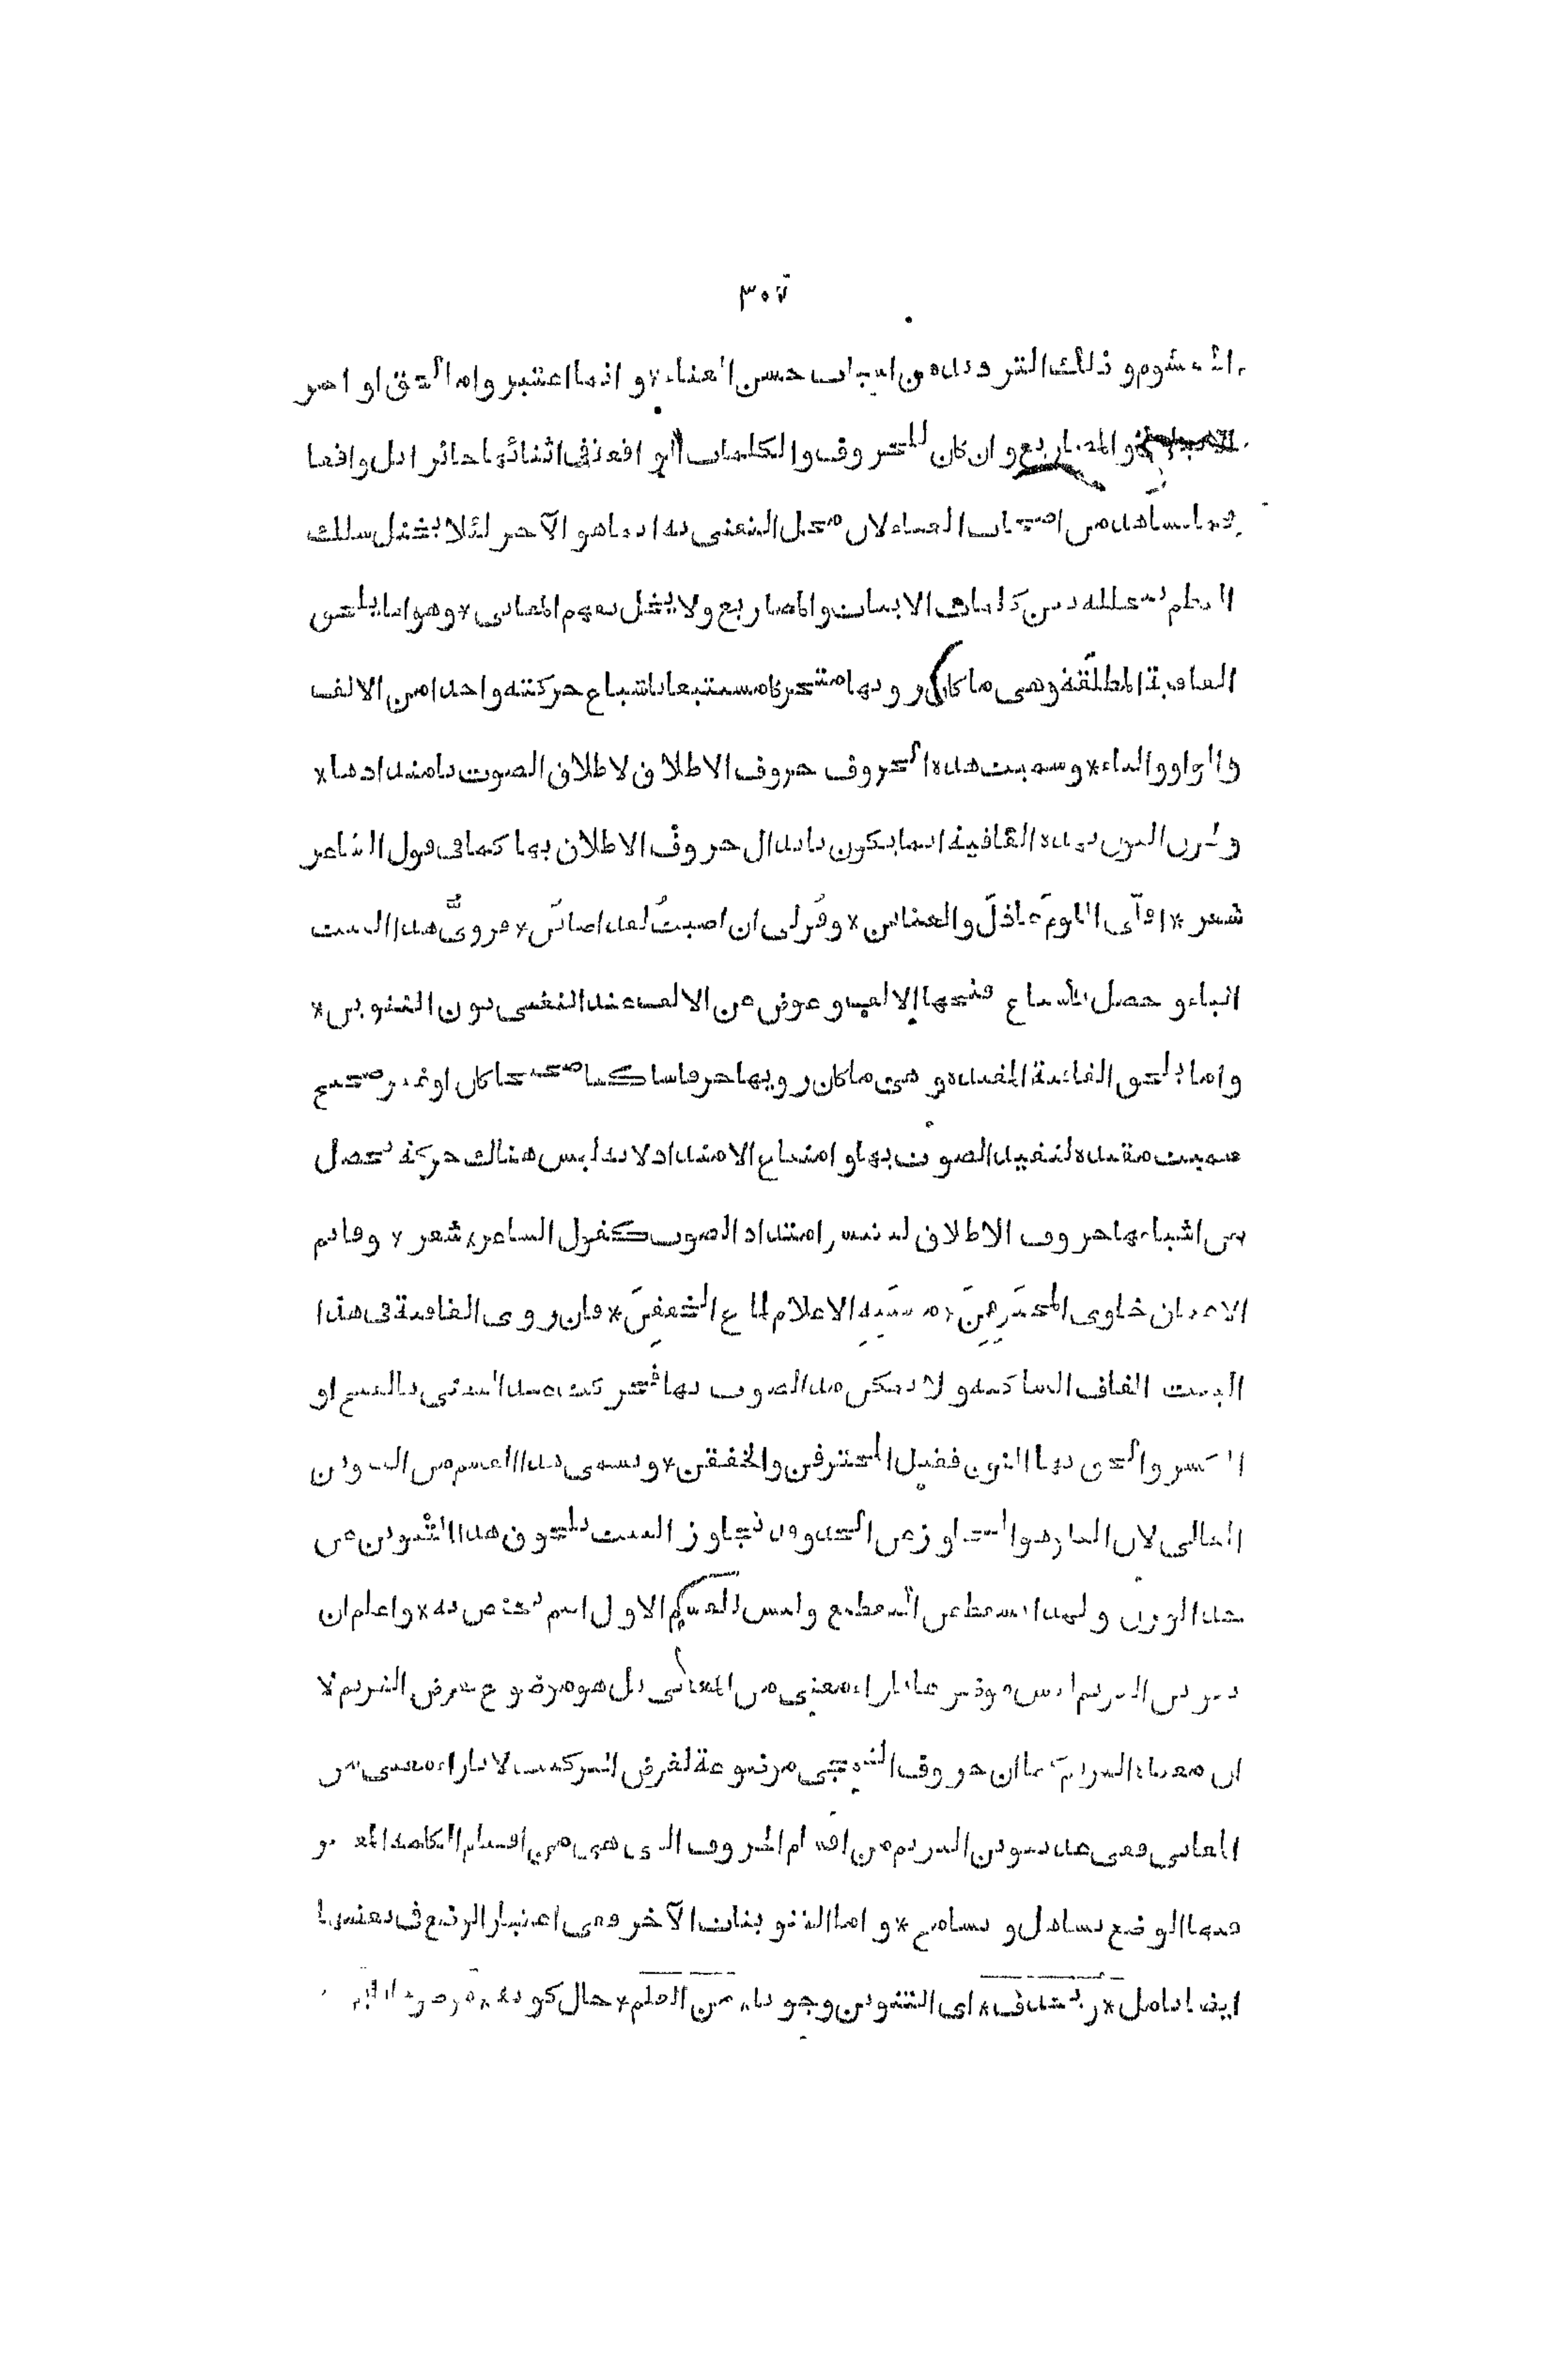 ٣٠٧
الخيشوم وذلك التردد من اسباب حسن الغناء * وانما اعتبروا لحوق اواخر
الابيات والمصاريع وان كان للحروف والكلمات الواقعة فى اثنائها جائز ابل واقعا
فيما يشاهد من اصحاب الغناء لان محل التغنى به انما هو الآخر لئلا يختل سلك
النظم بتخلله بين كلمات الابيات والمصاريع ولا يخل بفهم المعانى * وهو اما يلحق
القافية المطلقة وهى ما كان رويها متحركا مستتبعا باشباع حركته واحدا من الالف
والواو والياء * وسميت هذه الحروف حروف الاطلاق لاطلاق الصوت بامتدادها *
ولحوق التنوين بهذه القافية انما يكون بابدال حروف الاطلاق بها كما فى قول الشاعر
شعر * اقلّى اللومَ عاذلَ والعتابن * وقُولى ان اصبتُ لقد اصابن * فروىُّ هذا البيت
الباء وحصل باشباع فتحها الالف وعوض عن الالف عند التغنى نون التنوين *
واما يلحق القافية المقيدة وهى ما كان رويها حرفا ساكنا صحيحا كان او غير صحيح
سميت مقيدة لتقييد الصوت بها وامتناع الامتداد لانه ليس هناك حركة تحصل
من اشباعها حروف الاطلاق ليتيسر امتداد الصوت كقول الشاعر * شعر * وقاتم
الاعماق خاوى المخترقِنَ * مشتبِه الاعلام لماع الخفقِنَ * فان روى القافية فى هذا
البيت القاف الساكنة ولا يمكن مد الصوت بها فحركت عند التغنى بالفتح او
الكسر والحق بها النون فقيل المخترقن والخفقن * ويسمى هذا القسم من التنوين
الغالى لان الغلو هو التجاوز عن الحد وقد تجاوز البيت بلحوق هذا التنوين عن
حد الوزن ولهذا يسقط عن التقطيع وليس للقسم الاول اسم يختص به * واعلم ان
تنوين الترنم ليس موضوعا بازاء معنى من المعانى بل هو موضوع لغرض الترنم لا
ان معناه الترنم كما ان حروف التهجى موضوعة لغرض التركيب لا بازاء معنى من
المعانى ففى عد تنوين الترنم من اقسام الحروف التى هى من اقسام الكلمة المعتبر
فيها الوضع تساهل وتسامح * واما التنوينات الآخر ففى اعتبار الوضع فى بعضها
ايضا تامل * ويحذف * اى التنوين وجوبا * من العلم * حال كونه *